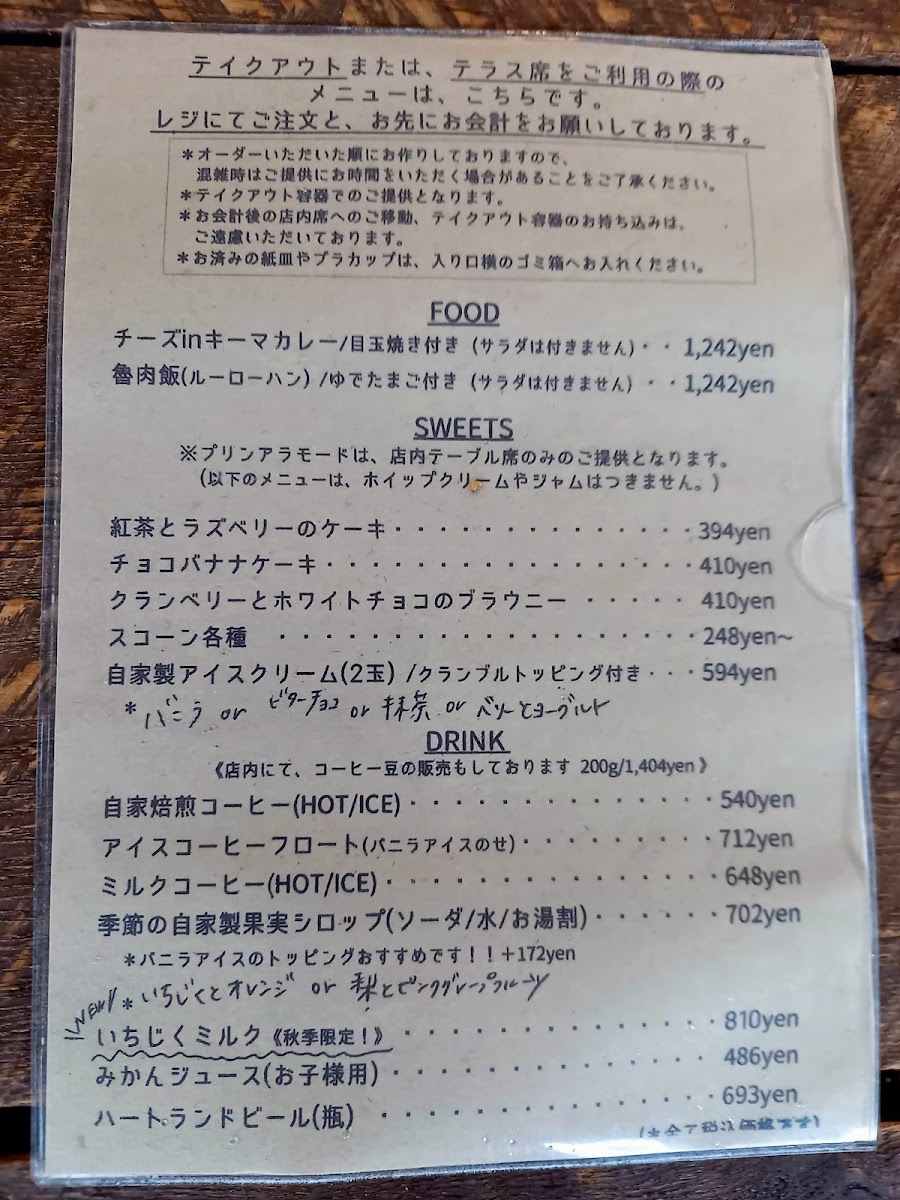 テイクアウトまたは、テラス席をご利用の際の
メニューは、こちらです。
レジにてご注文と、お先にお会計をお願いしております。
＊オーダーいただいた順にお作りしておりますので、
混雑時はご提供にお時間をいただく場合があることをご了承ください。
＊テイクアウト容器でのご提供となります。
＊お会計後の店内席へのご移動、テイクアウト容器のお持ち込みは、
ご遠慮いただいております。
＊お済みの紙皿やプラカップは、入り口横のゴミ箱へお入れください。
FOOD
チーズinキーマカレー/目玉焼き付き（サラダは付きません）・・ 1,242yen
魯肉飯(ルーローハン）/ゆでたまご付き（サラダは付きません）・・ 1,242yen
SWEETS
※プリンアラモードは、店内テーブル席のみのご提供となります。
（以下のメニューは、ホイップクリームやジャムはつきません。）
紅茶とラズベリーのケーキ・・・・・・・・・・・・・・・394yen
チョコバナナケーキ・・・・・・・・・・・・・・・・・・410yen
クランベリーとホワイトチョコのブラウニー ・・・・・410yen
スコーン各種 ・・・・・・・・・・・・・・・・・・・248yen～
自家製アイスクリーム(2玉）/クランブルトッピング付き・・・594yen
＊バニラ or ビターチョコ or 抹茶 or ベリーとヨーグルト
DRINK
《店内にて、コーヒー豆の販売もしております 200g/1,404yen》
自家焙煎コーヒー(HOT/ICE)・・・・・・・・・・・・・・540yen
アイスコーヒーフロート(バニラアイスのせ)・・・・・・・・・712yen
ミルクコーヒー(HOT/ICE)・・・・・・・・・・・・・・・648yen
季節の自家製果実シロップ(ソーダ/水/お湯割)・・・・・・702yen
＊バニラアイスのトッピングおすすめです！！＋172yen
＊いちじくとオレンジ or 梨とピンクグレープフルーツ
NEW!
いちじくミルク《秋季限定！》・・・・・・・・・・・・・・810yen
みかんジュース(お子様用）・・・・・・・・・・・・・・・486yen
ハートランドビール(瓶） ・・・・・・・・・・・・・・・693yen
(＊全て税込価格です)